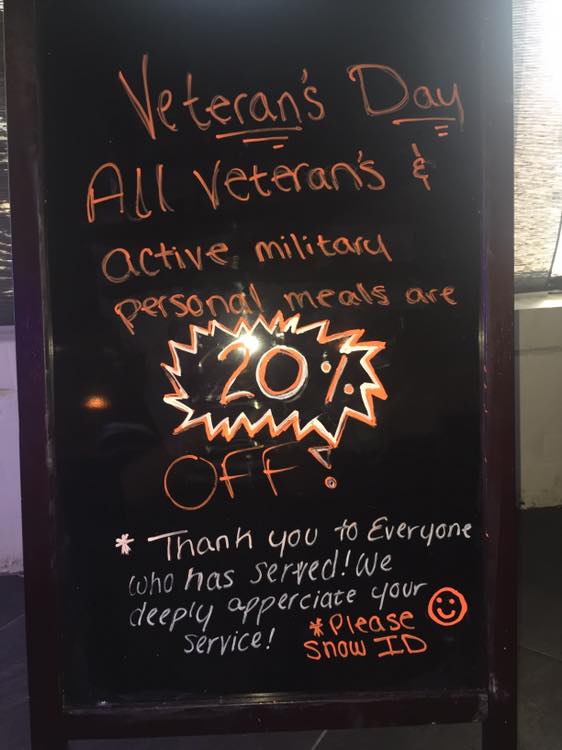 Veteran's Day
All Veteran's &
active military
personal meals are
20%
OFF!
* Thank you to Everyone
who has served! We
deeply apperciate your
service! *Please
show ID